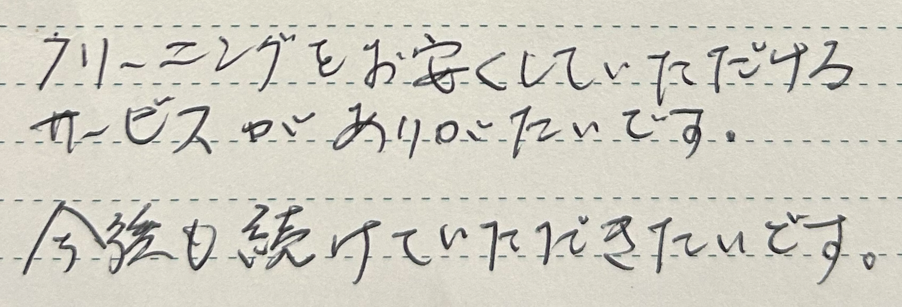 クリーニングをお安くしていただける
サービスがありがたいです.
今後も続けていただきたいです。